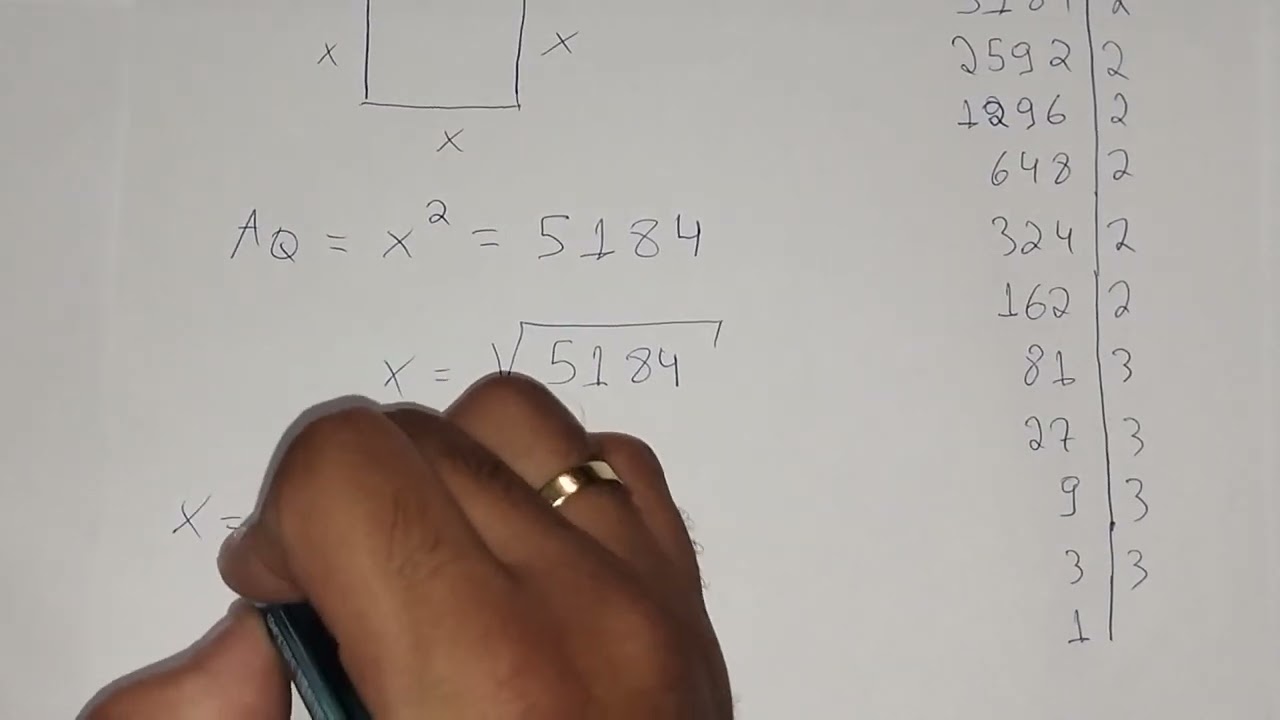 x x
x
AQ = x² = 5184
x = √5184
x =
5184 | 2
2592 | 2
1296 | 2
648 | 2
324 | 2
162 | 2
81 | 3
27 | 3
9 | 3
3 | 3
1 |